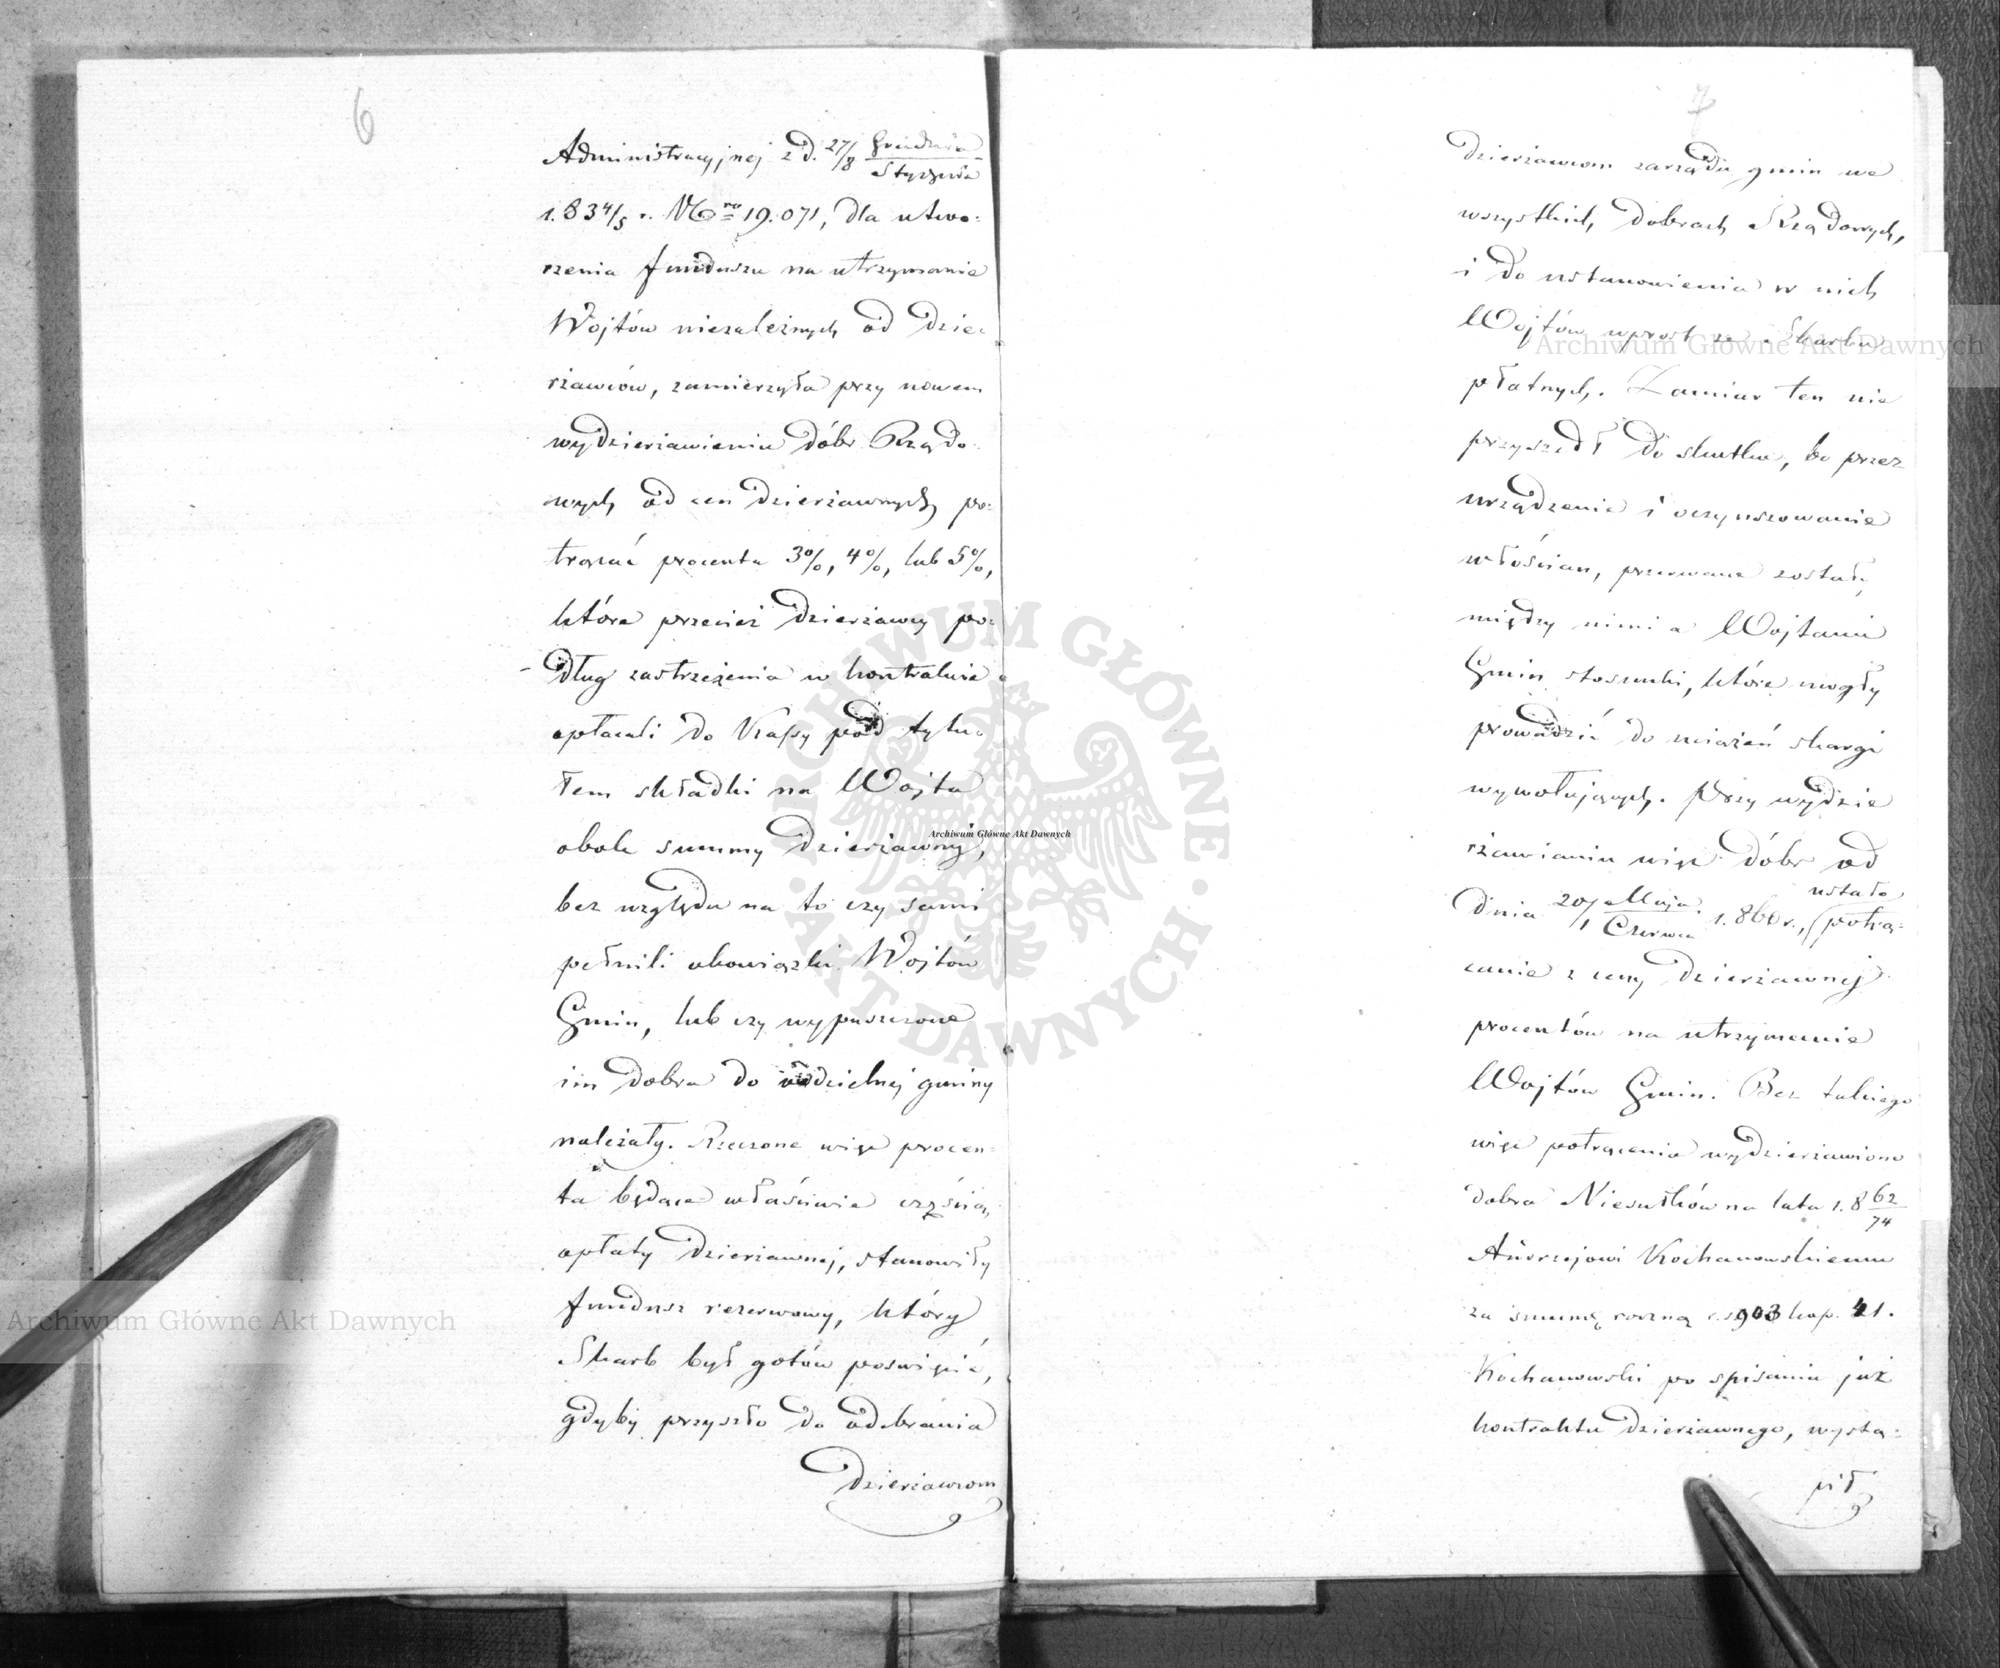 6
Administracyjnej z d. 27/8 Grudnia
Stycznia
1.834/5 r. Nro 19.071, dla utwo=
rzenia funduszu na utrzymanie
Wojtów niezależnych od dzier
żawców, zamierzyła przy nowem
wydzierżawieniu dóbr Rządo
wych od cen dzierżawnych po=
trącać procenta 3%, 4%, lub 5%,
które przecież dzierżawcy po=
dług zastrzeżenia w kontrakcie
opłacali do Kassy pod tytu=
łem składki na Wojta
obok summy dzierżawnej,
bez względu na to czy sami
pełnili obowiązki Wojtów
Gmin, lub czy wypuszczone
im dobra do oddzielnej gminy
należały. Rzeczone więc procen
ta będące właściwie częścią
opłaty dzierżawnej, stanowiły
fundusz rezerwowy, który
Skarb był gotów poświęcić,
gdyby przyszło do odebrania
Dzierżawcom
7
Dzierżawcom zarządu gmin we
wszystkich dobrach Rządowych,
i do ustanowienia w nich
Wojtów wprost ze Skarbu
płatnych. Zamiar ten nie
przyszedł do skutku, bo przez
urządzenie i oczynszowanie
włościan, przerwane zostały
między nimi a Wojtami
Gmin stosunki, które mogły
prowadzić do zażaleń skargi
wywołujących. Przy wydzie
rżawianiu więc dóbr od
dnia 20/1 Maja
Czerwca 1.860 r., ustało
(potrą=
canie z ceny dzierżawnej
procentów na utrzymanie
Wojtów Gmin. Bez takiego
więc potrącenia wydzierżawiono
dobra Niesułków na lata 1.862
74
Andrzejowi Kochanowskiemu
za summę roczną rs. 903 kop. 41.
Kochanowski po spisaniu już
kontraktu dzierżawnego, wystą=
pił
Archiwum Główne Akt Dawnych
ARCHIWUM GŁÓWNE AKT DAWNYCH
Archiwum Główne Akt Dawnych
Archiwum Główne Akt Dawnych